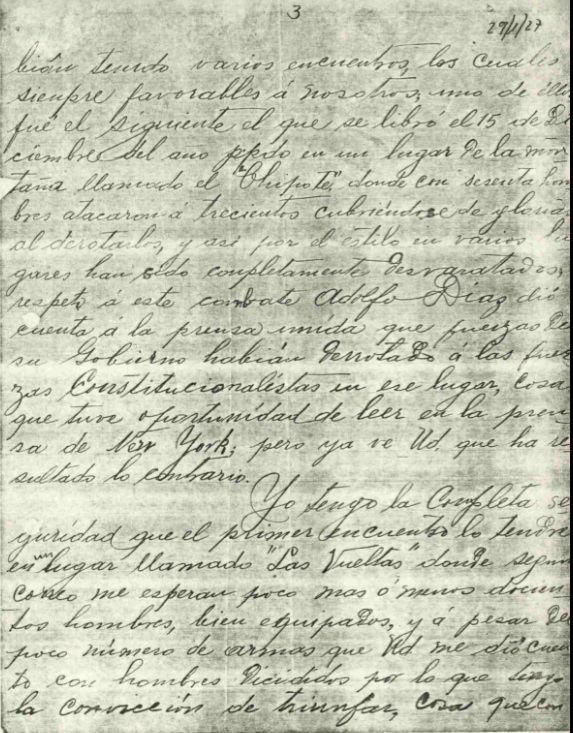 3
29/1/27
bián tenido varios encuentros, los cuales
sienpre favorables á nosotros, uno de ello
fué el siguiente el que se libró el 15 de Di
ciembre del año ppdo en un lugar de la mon
taña llamado el "Chipote," donde con sesenta hom
bres atacaron á trecientos cubriéndose de gloria,
al derotarlos, y asi por el estilo en varios lu
gares han sido completamente desvaratados,
respeto á este combate Adolfo Diaz dió
cuenta á la prensa unida que fuerzas de
su Gobierno habián derrotado á las fuer
zas Constitucionalistas en ese lugar, cosa
que tuve oportunidad de leer en la pren
sa de New York; pero ya ve Ud. que ha re
sultado lo contrario.
Yo tengo la Completa se
guridad que el primer encuentro lo tendre
en un lugar llamado "Las Vueltas" donde segun
coreo me esperan poco mas ó menos docien
tos hombres, bien equipados, y á pesar del
poco número de armas que Ud. me dió cuen
to con hombres dicididos por lo que tengo
la convicción de triunfar, cosa que con